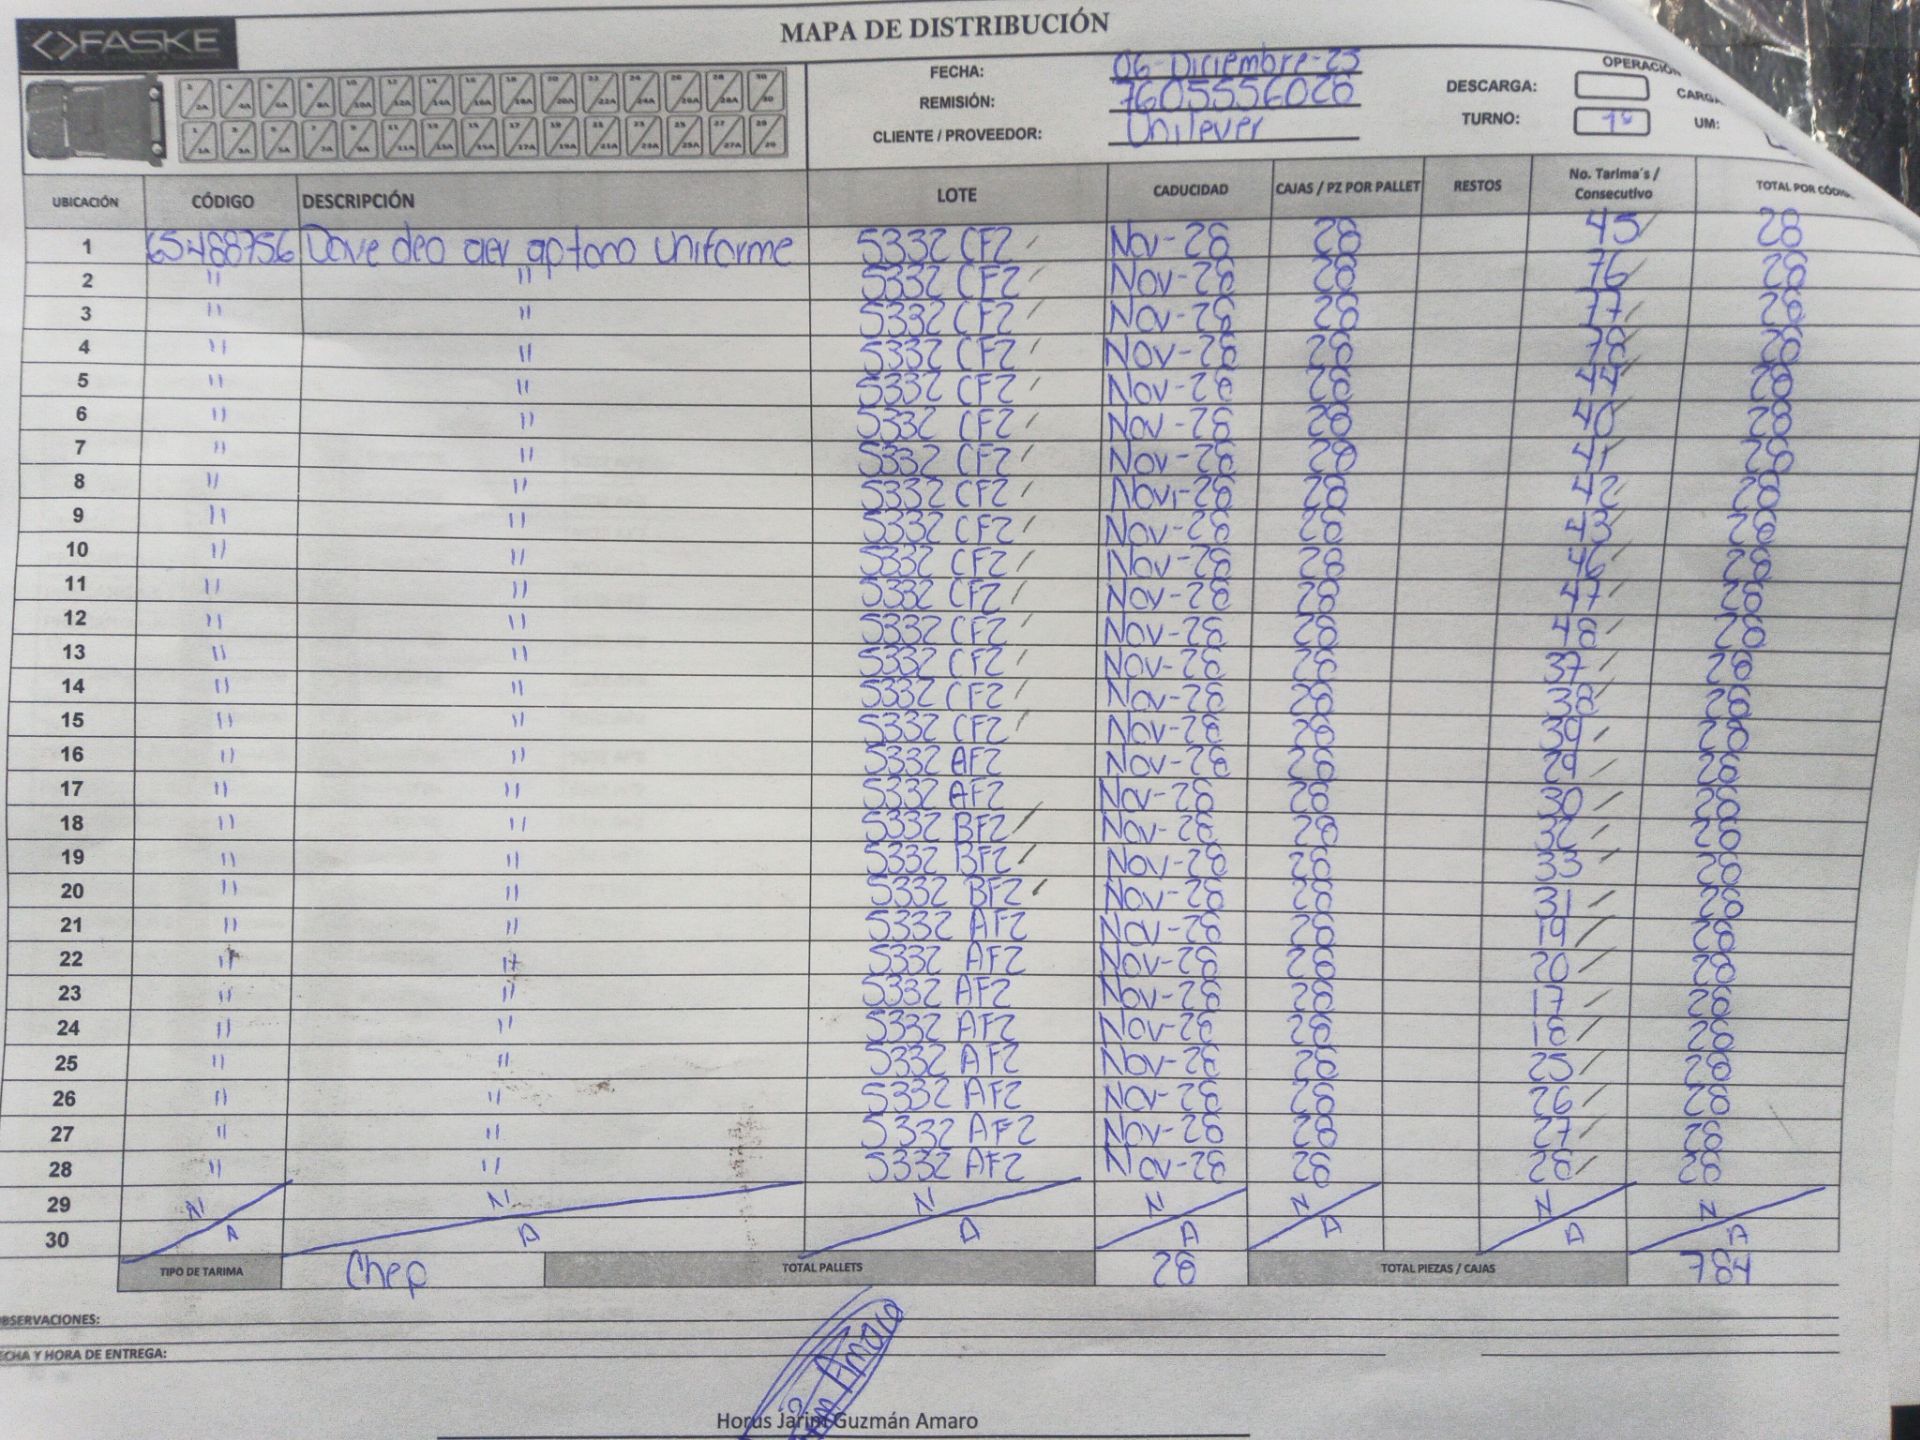 FASKE
MAPA DE DISTRIBUCIÓN
FECHA: 06-Diciembre-25
REMISIÓN: 7605556026
CLIENTE / PROVEEDOR: Unilever
OPERACIÓN
DESCARGA: CARGA
TURNO: 1° UM:
UBICACIÓN CÓDIGO DESCRIPCIÓN LOTE CADUCIDAD CAJAS / PZ POR PALLET RESTOS No. Tarima's / Consecutivo TOTAL POR CÓDIG
1 65488756 Dove deo aer ap tono uniforme 5332 CF2 Nov-28 28 45 28
2 " " 5332 CF2 Nov-28 28 76 28
3 " " 5332 CF2 Nov-28 28 77 28
4 " " 5332 CF2 Nov-28 28 78 28
5 " " 5332 CF2 Nov-28 28 44 28
6 " " 5332 CF2 Nov-28 28 40 28
7 " " 5332 CF2 Nov-28 28 41 28
8 " " 5332 CF2 Nov-28 28 42 28
9 " " 5332 CF2 Nov-28 28 43 28
10 " " 5332 CF2 Nov-28 28 46 28
11 " " 5332 CF2 Nov-28 28 47 28
12 " " 5332 CF2 Nov-28 28 48 28
13 " " 5332 CF2 Nov-28 28 37 28
14 " " 5332 CF2 Nov-28 28 38 28
15 " " 5332 CF2 Nov-28 28 39 28
16 " " 5332 AF2 Nov-28 28 29 28
17 " " 5332 AF2 Nov-28 28 30 28
18 " " 5332 BF2 Nov-28 28 32 28
19 " " 5332 BF2 Nov-28 28 33 28
20 " " 5332 BF2 Nov-28 28 31 28
21 " " 5332 AF2 Nov-28 28 19 28
22 " " 5332 AF2 Nov-28 28 20 28
23 " " 5332 AF2 Nov-28 28 17 28
24 " " 5332 AF2 Nov-28 28 18 28
25 " " 5332 AF2 Nov-28 28 25 28
26 " " 5332 AF2 Nov-28 28 26 28
27 " " 5332 AF2 Nov-28 28 27 28
28 " " 5332 AF2 Nov-28 28 28 28
29 N N N N N N N
30 A A A A A A A
TIPO DE TARIMA Chep TOTAL PALLETS 28 TOTAL PIEZAS / CAJAS 784
OBSERVACIONES:
ECHA Y HORA DE ENTREGA:
Amaro
Horus Jarim Guzmán Amaro